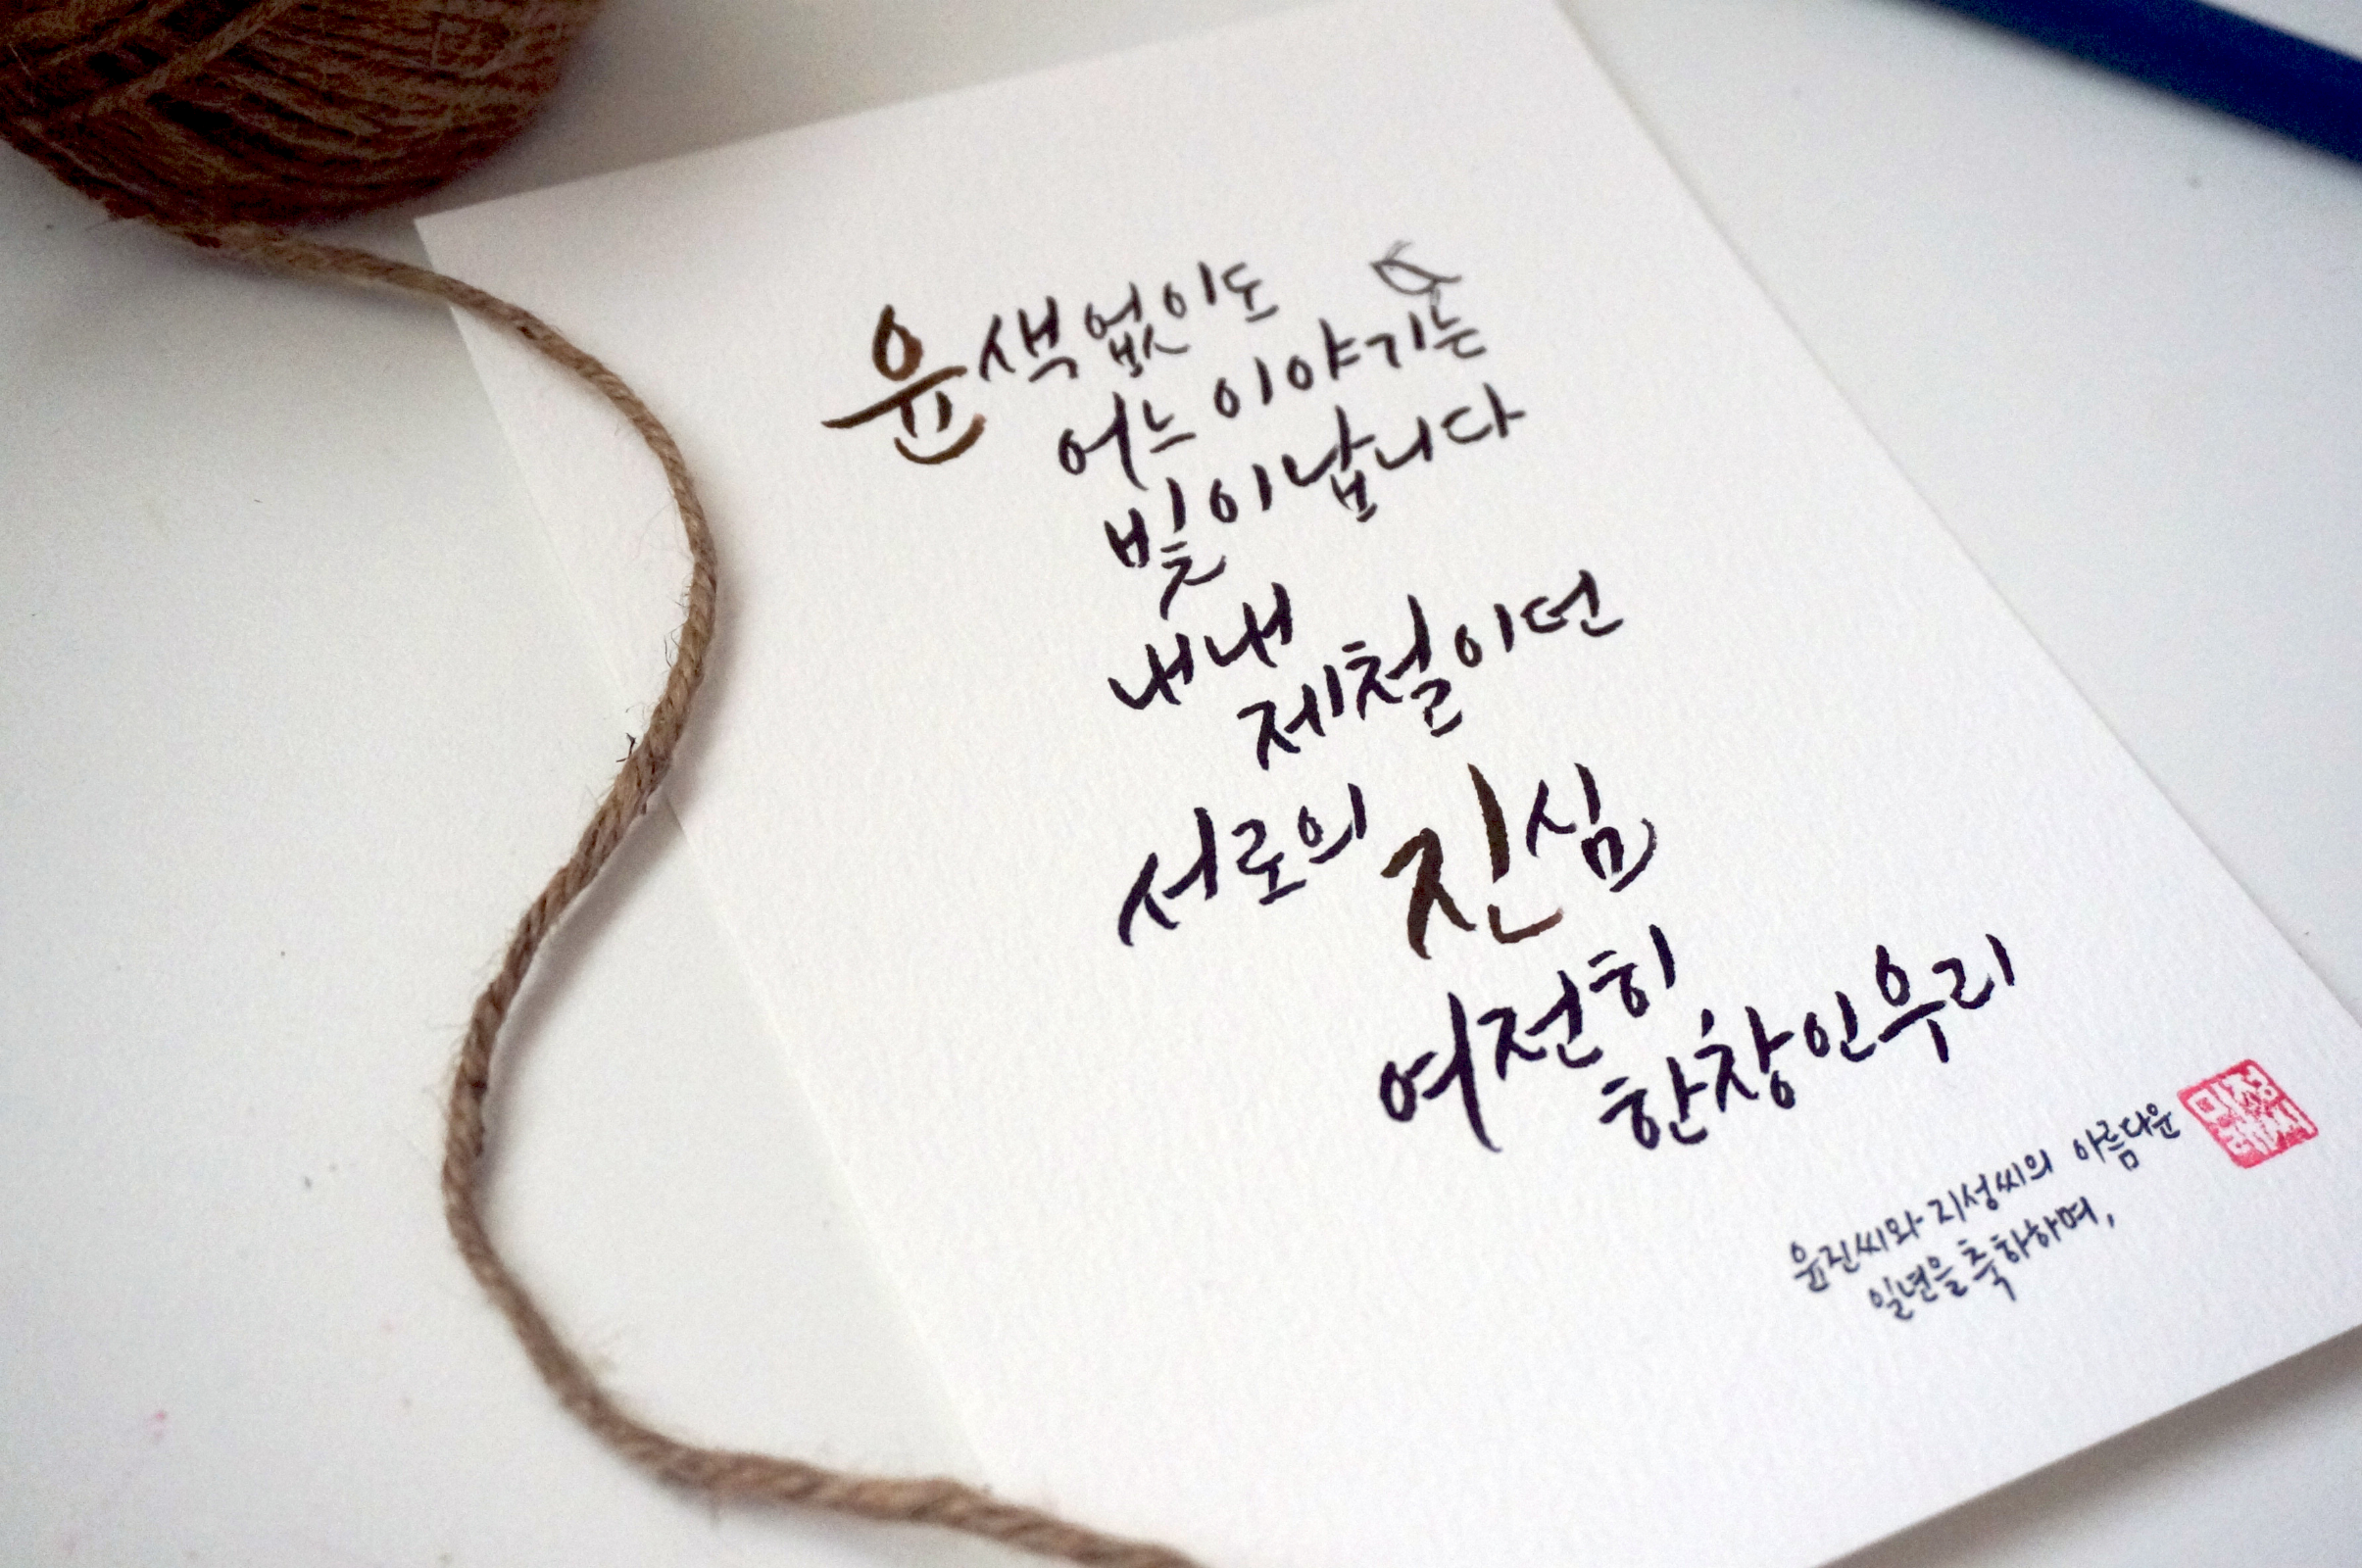 윤색없이도
어느 이야기는
빛이납니다
내내
제철이던
서로의 진심
여전히
한창인우리
윤진씨와 지성씨의 아름다운
일년을 축하하며,